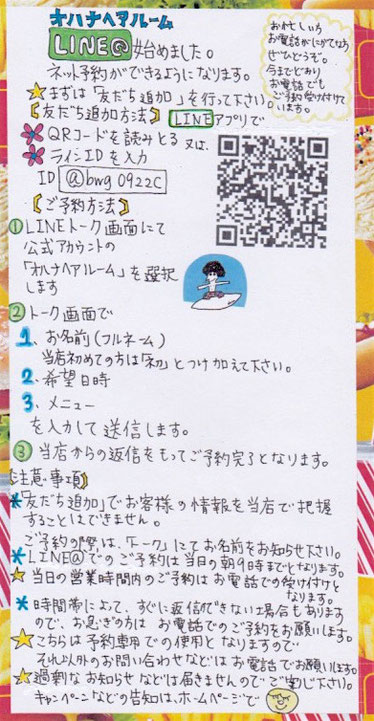 オハナヘアルーム
LINE@始めました。
ネット予約ができるようになります。
★まずは「友だち追加」を行って下さい。
【友だち追加方法】LINEアプリで
QRコードを読みとる 又は、
ラインIDを入力
ID @bwg0922c
お忙しい方
お電話がにがてな方
ぜひどうぞ。
今までどおり
お電話でも
ご予約受け付けて
います。
【ご予約方法】
①LINEトーク画面にて
公式アカウントの
「オハナヘアルーム」を選択
します
②トーク画面で
1、お名前(フルネーム)
当店初めての方は「初」とつけ加えて下さい。
2、希望日時
3、メニュー
を入力して送信します。
③当店からの返信をもってご予約完了となります。
注意事項】
*「友だち追加」でお客様の情報を当店で把握
することはできません。
ご予約の際は、「トーク」にてお名前をお知らせ下さい。
*LINE@でのご予約は当日の朝9時までとなります。
★当日の営業時間内のご予約はお電話での受け付けと
なります。
*時間帯によって、すぐに返信ができない場合もあります
ので、お急ぎの方は お電話でのご予約をお願いします。
★こちらは予約専用での使用となりますので
それ以外のお問い合わせなどはお電話でお願いします。
★過剰なお知らせなどは届きませんのでご安心下さい。
キャンペーンなどの告知は、ホームページで